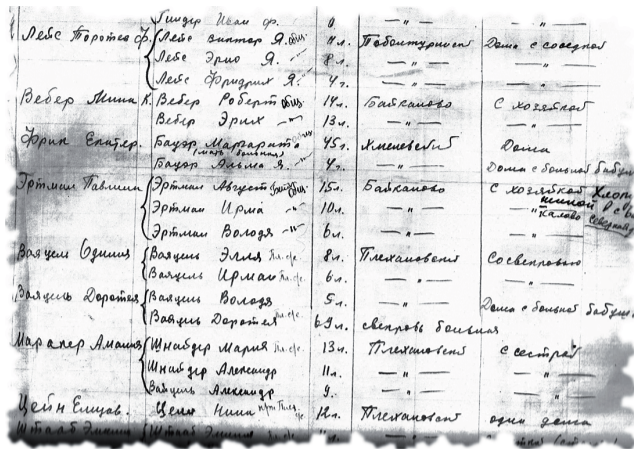 Гиндер Иван ф. 0 — " — — " —
Лейс Доротея Ф. Лейс Виктор Я. общ. 11 л. Дома с соседкой
Лейс Эрно Я. — " — 8 л. — " — — " —
Лейс Фридрих Я. — " — 4 г. — " — — " —
Вебер Мина К. Вебер Роберт общ. 14 л. Байканово С хозяйкой
Вебер Эрих — " — 13 л. — " — — " —
Фрик Екатер. Бауэр Маргарита общ. 45 г. Хмелевский Дома
(мать больная)
Бауэр Альма Я. 4 г. — " — Дома с больной бабуш
Эртман Павлина Эртман Август общ. 15 л. Байканово С хозяйкой
Эртман Ирма — " — 10 л. — " — — " —
Эртман Володя — " — 6 л. — " — — " —
Ваяцель Эмилия Ваяцель Элля 8 л. Плехановский Со свекровью
Ваяцель Ирман 6 л. — " — — " —
Ваяцель Доротея Ваяцель Володя 5 л. — " — Дома с больной бабуш
Ваяцель Доротея 69 л. свекровь больная
Маракер Амалия Шнайдер Мария 13 л. Плехановский с сестрой
Шнайдер Александр 11 л. — " — — " —
Ваяцель Александр 9. — " — — " —
Цейн Елизав. Цейн Нина 12 л. Плехановский одни дома
Штааб Эмилия Штааб Эмилия — " —